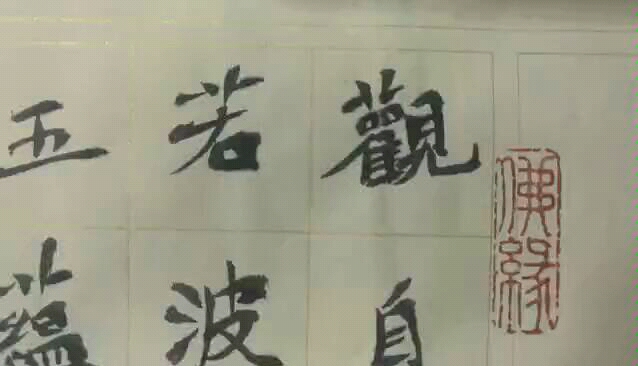 佛緣
觀自
若波
五蘊